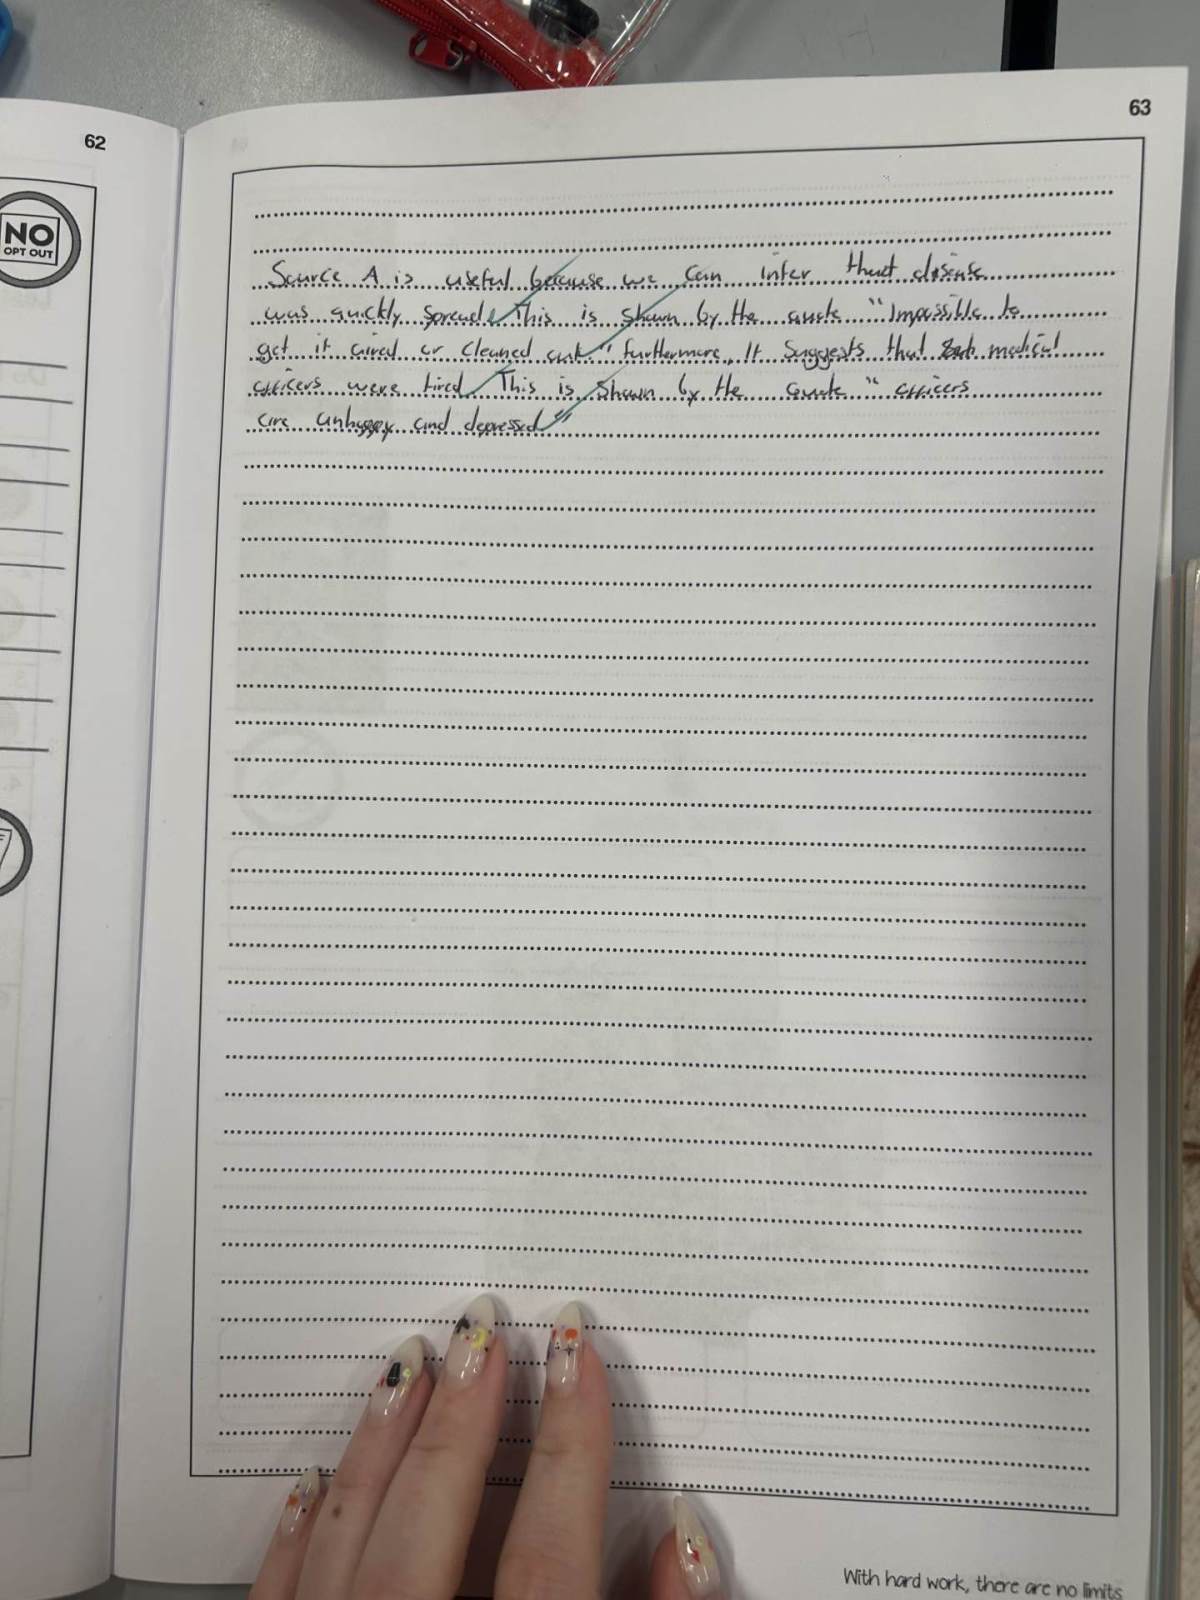 62
63
NO
OPT OUT
Source A is useful because we can infer that disease
was quickly spread. This is shown by the quote "Impossible to
get it aired or cleaned out." furthermore, It suggests that medical
officers were tired. This is shown by the quote "officers
are unhappy and depressed"
With hard work, there are no limits